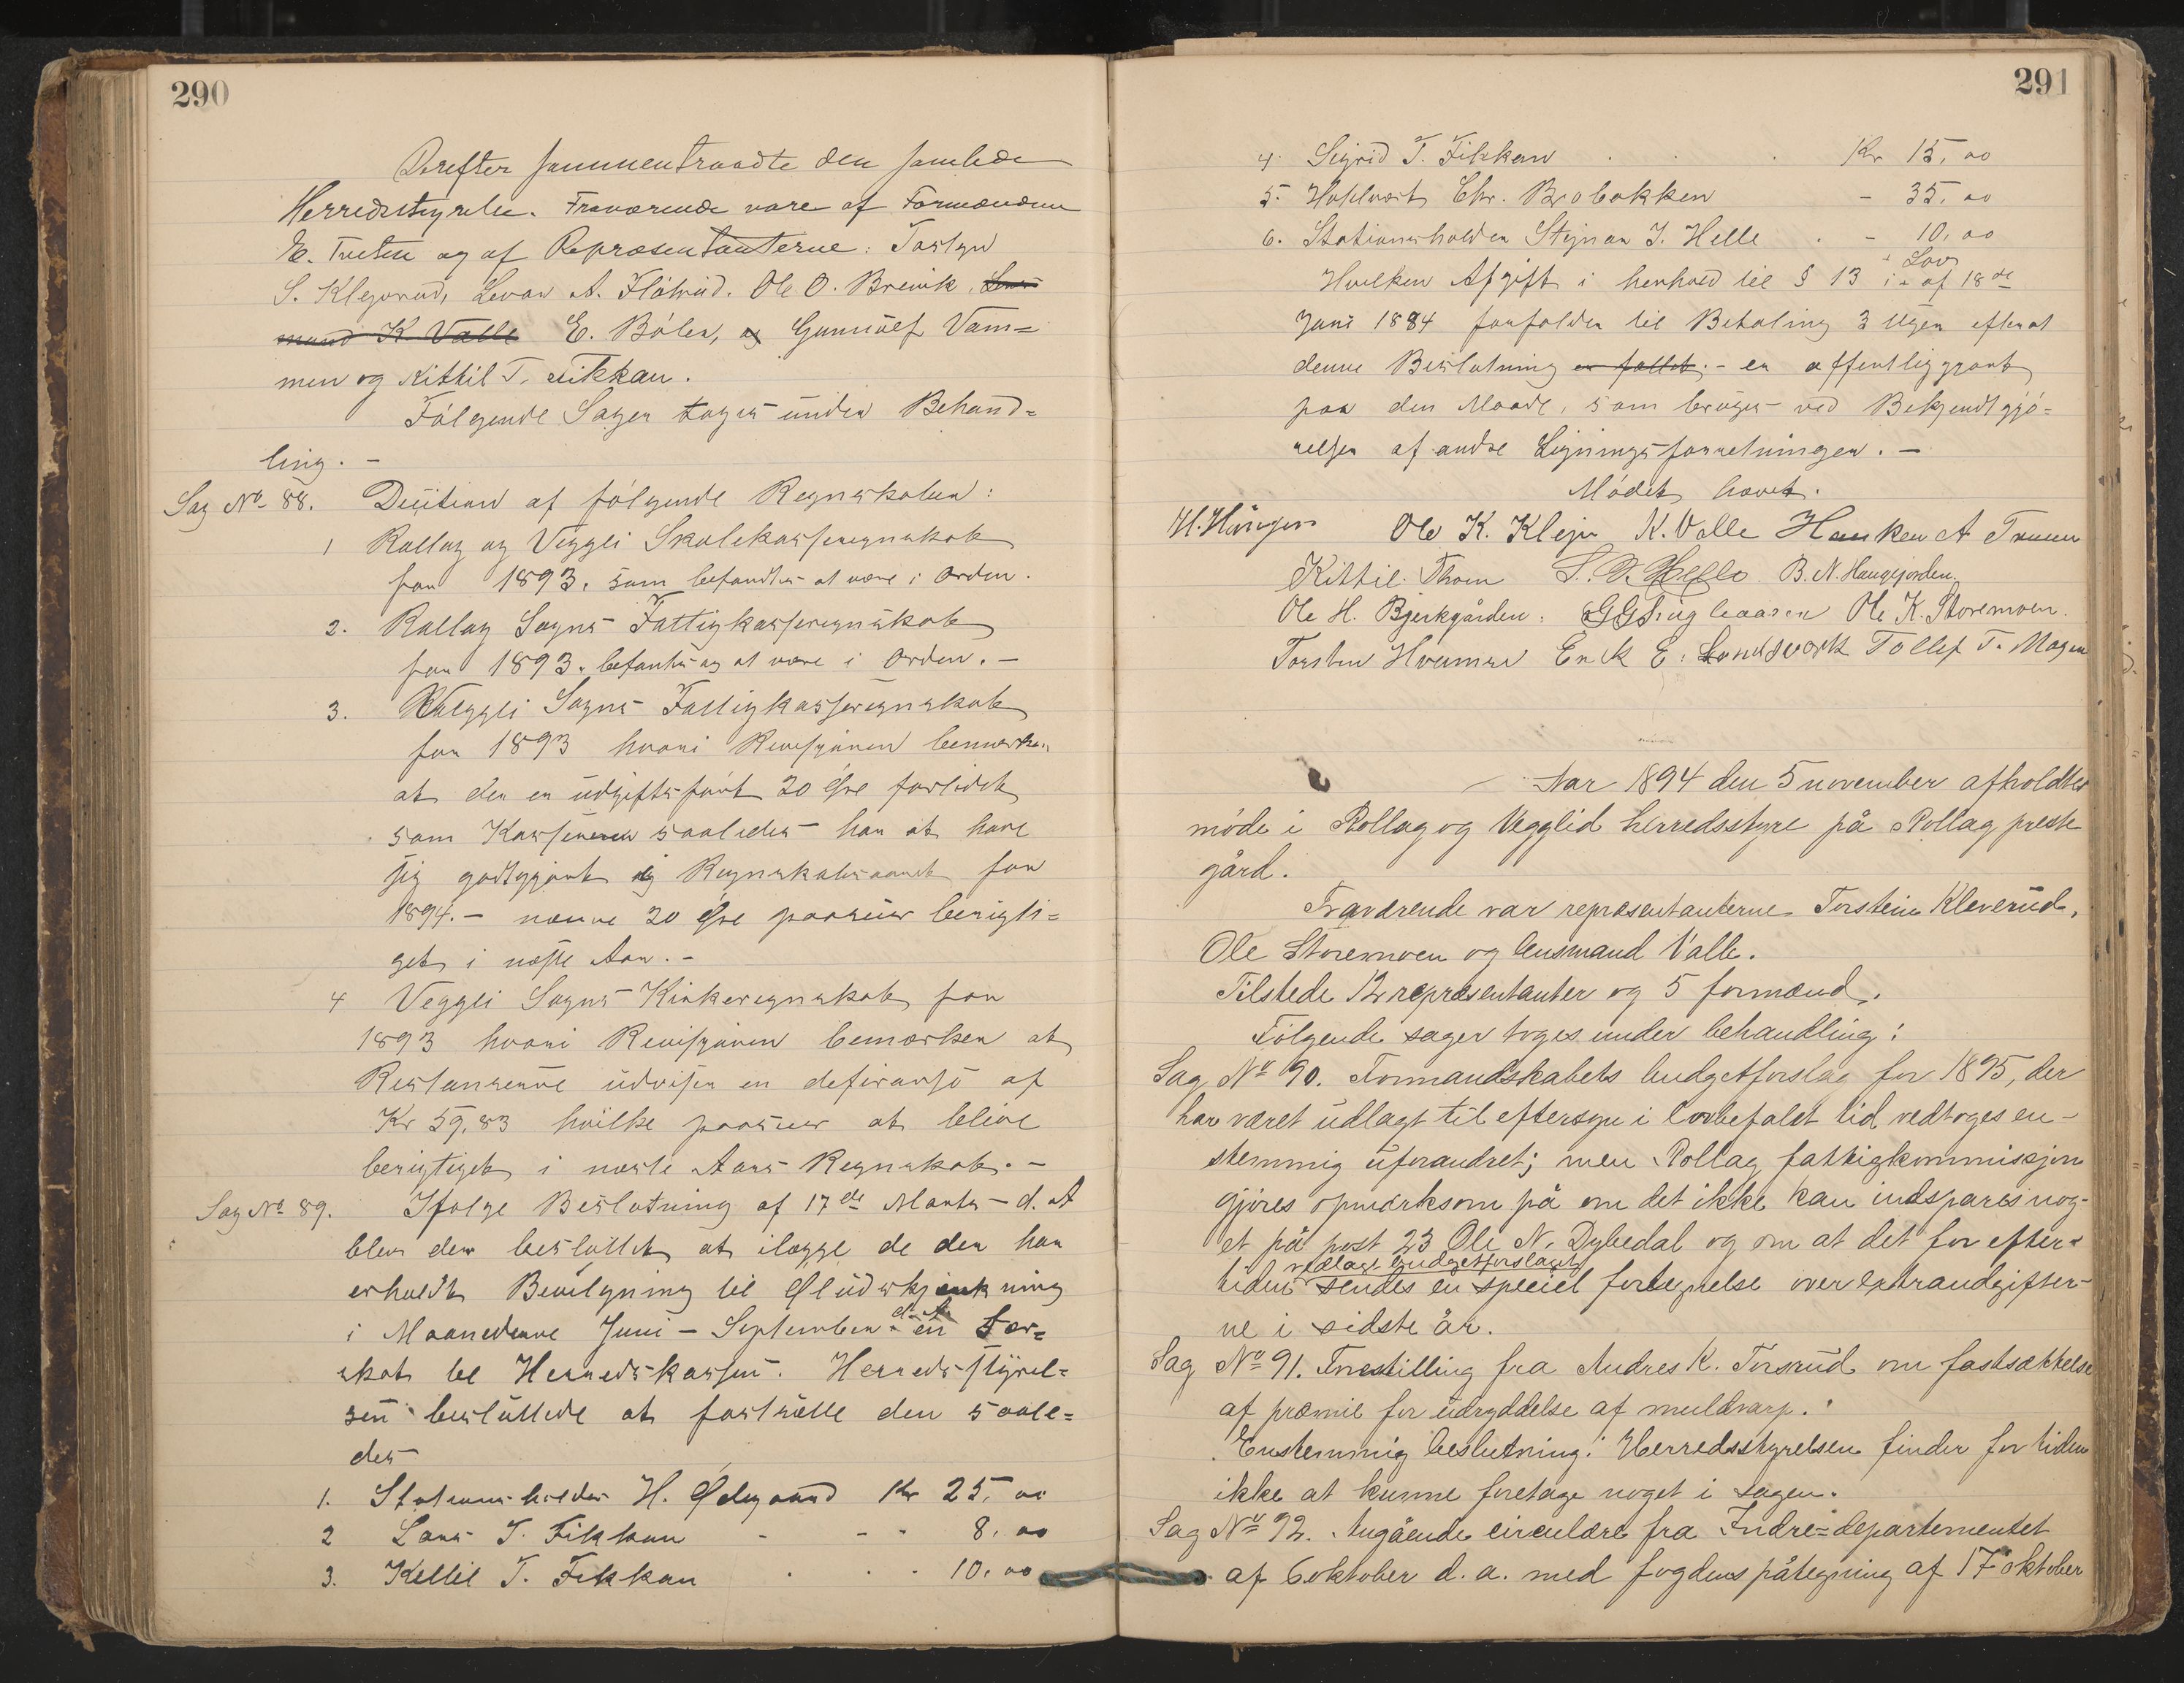 290
Derefter sammentraadte den samlede
Herredsstyrelse. Fraværende vare af Formændene
E. Tveten og af Repræsentanterne: Torsten
S. Kleverud, Levor A. Flåtrud. Ole O. Brevik,
mand K. Valle E. Bölen, og Gunnulf Væm=
men og Kittil T. Fikkan.
Fölgende Sager toges under Behand=
ling. –
Sag No 88. Desition af fölgende Regnskaber:
1 Rollag og Veggli Skolekasseregnskab
for 1893. som befandtes at være i Orden.
2. Rollag Sogns Fattigkasseregnskab
for 1893. befantes og at være i Orden. –
3. Veggli Sogns Fattigkasseregnskab
for 1893 hvori Revisjonen bemærker
at der er udgiftsfört 20 Öre forlidet
som Kassereren saaledes har at have
sig godtgjort i Regnskabsaaret for
1894. – nævne 20 Öre paasees berigti=
get i næste Aar. –
4 Veggli Sogns Kirkeregnskab for
1893 hvori Revisjonen bemærker at
Restanserne udviser en deferanse af
Kr 59,83 hvilke paasees at blive
berigtiget i næste Aars Regnskab. –
Sag No 89. Ifölge Beslutning af 17de Marts – d. A
blev der besluttet at ilægge de der har
erholdt Bevilgning til Öludskjænkning
d. A.
i Maanederne Juni – September en Tor=
skat til Herredskassen. Herredsstyrel=
sen besluttede at fastsætte den saale=
des
1. Stationsholder H. Ödegaard Kr 25,00
2 Lars T. Fikkan - - - 8,00
3. Kittil T. Fikkan . . . 10,00
291
4. Sigrid T. Fikkan . . . Kr 15,00
5. Hans Chr. Brobakken - 35,00
6. Stationsholder Steinar J. Helle . - 10,00
Lov
Hvilken Afgift i henhold til § 13 i af 18de
Juni 1884 forfalder til Betaling 3 Uger efterat
denne Beslutning er fattet. – er offentliggjort
paa den Maade, som bruges ved Bekjendtgjö=
relsen af andre Ligningsforretninger. –
Mödet hævet.
Ole K. Klejn K. Valle Hauken A Traaen
Kittil Thoen S. S. Helle B. N. Haugejorden.
Ole H. Bjerkgården. Ole K. Storemoen.
Torsten Hvammen Erik E. Landsverk Tollef T. Mogen
Aar 1894 den 5 november afholdtes
möde i Rollag og Vegglid herredsstyre på Rollag preste
gård.
Fraværende var repræsentanterne Torstein Kleverud,
Ole Storemoen og Gusmand Valle.
Tilstede 12 repræsentanter og 5 formænd.
Fölgende sager toges under behandling:
Sag No 90. Formandskabets budgetforslag for 1895, der
har været udlagt til eftersyn i lovbefalet tid vedtoges en-
stemmig uforandret; men Rollag fattigkommisjon
gjöres opmærksom på om det ikke kan indspares nog-
et på post 23 Ole N. Dybedal og om at det for efter-
vedlagt budgetforslaget
tiden sendes en speciel fortegnelse over extraudgifter-
ne i sidste år.
Sag No 91. Forestilling fra Andres K. Torsrud om fastsættelse
af præmie for udryddelse af muldvarp.
Enstemmig beslutning: Herredsstyrelsen finder for tiden
ikke at kunne foretage noget i sagen.
Sag No 92. Angående circulære fra Indre=departementet
af 6 oktober d. a. med fogdens påtegning af 17 oktober